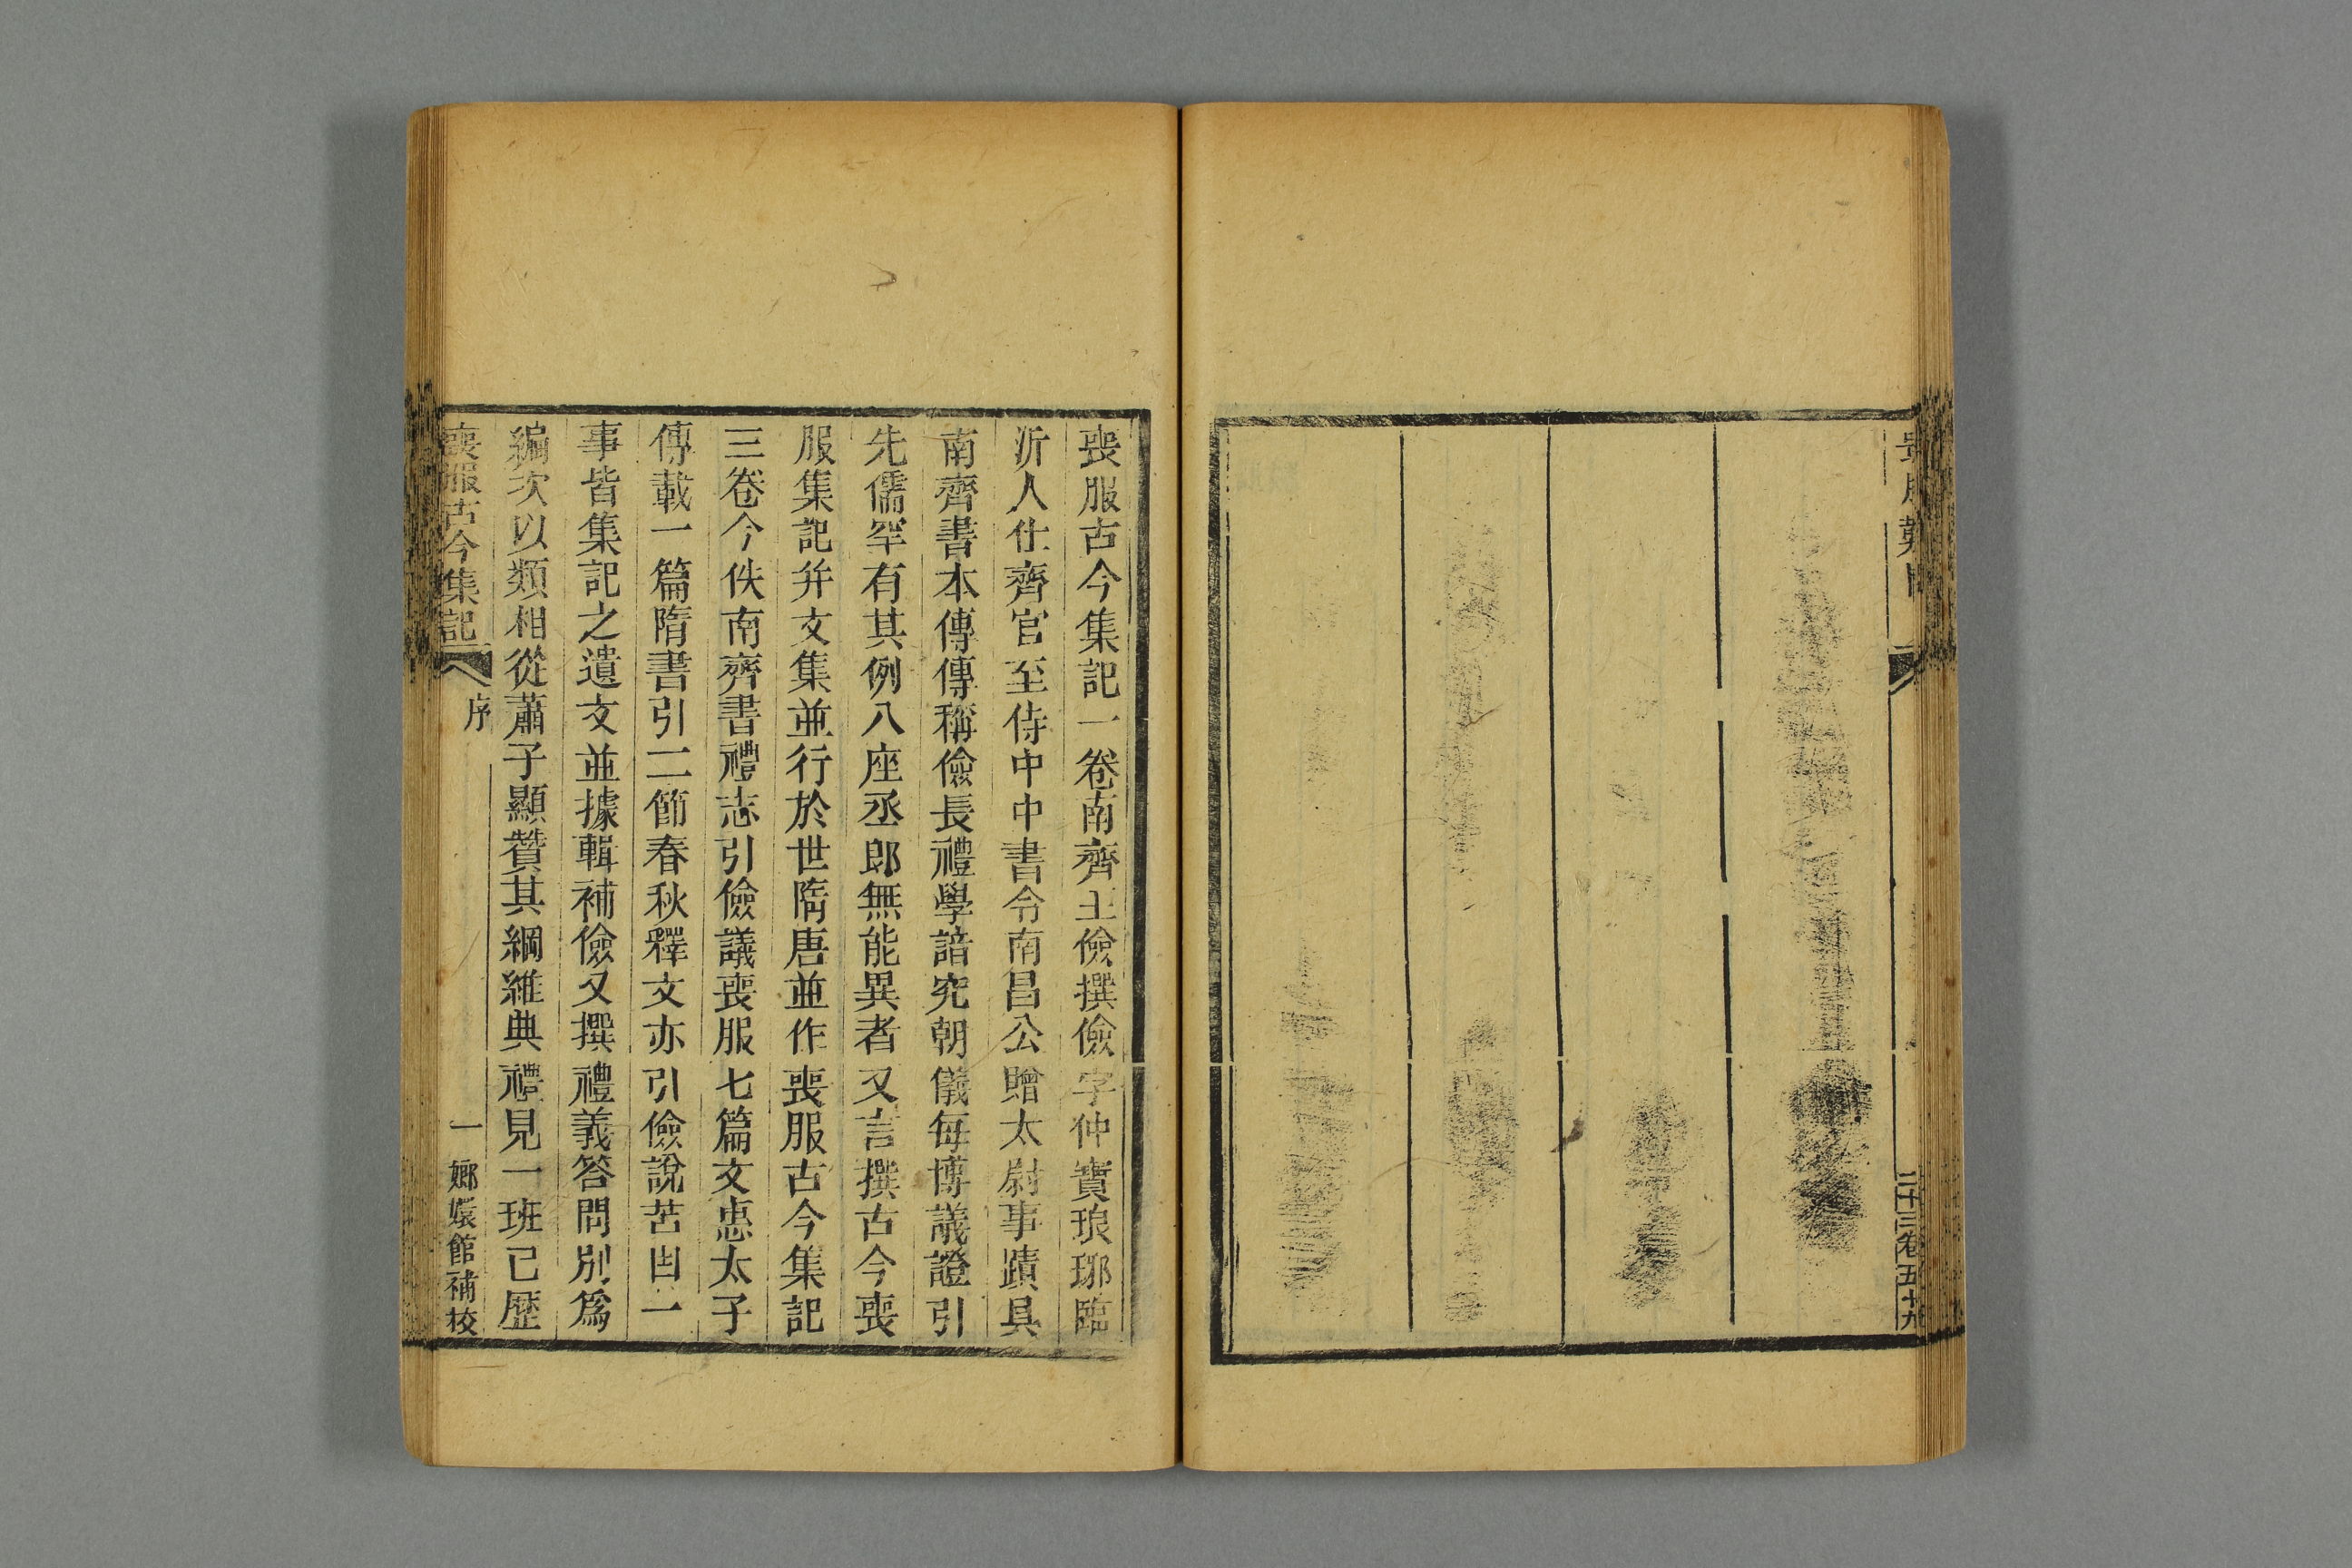 二十三卷五十九
喪服古今集記一卷南齊王儉撰儉字仲寶琅琊臨
沂人仕齊官至侍中中書令南昌公贈太尉事蹟具
南齊書本傳傳稱儉長禮學諳究朝儀每博議證引
先儒罕有其例八座丞郎無能異者又言撰古今喪
服集記并文集並行於世隋唐並作喪服古今集記
三卷今佚南齊書禮志引儉議喪服七篇文惠太子
傳載一篇隋書引二節春秋釋文亦引儉說苫凷一
事皆集記之遺文並據輯補儉又撰禮義答問別爲
編次以類相從蕭子顯贊其綱維典禮見一班已歷
喪服古今集記 序 一 嫏嬛館補校